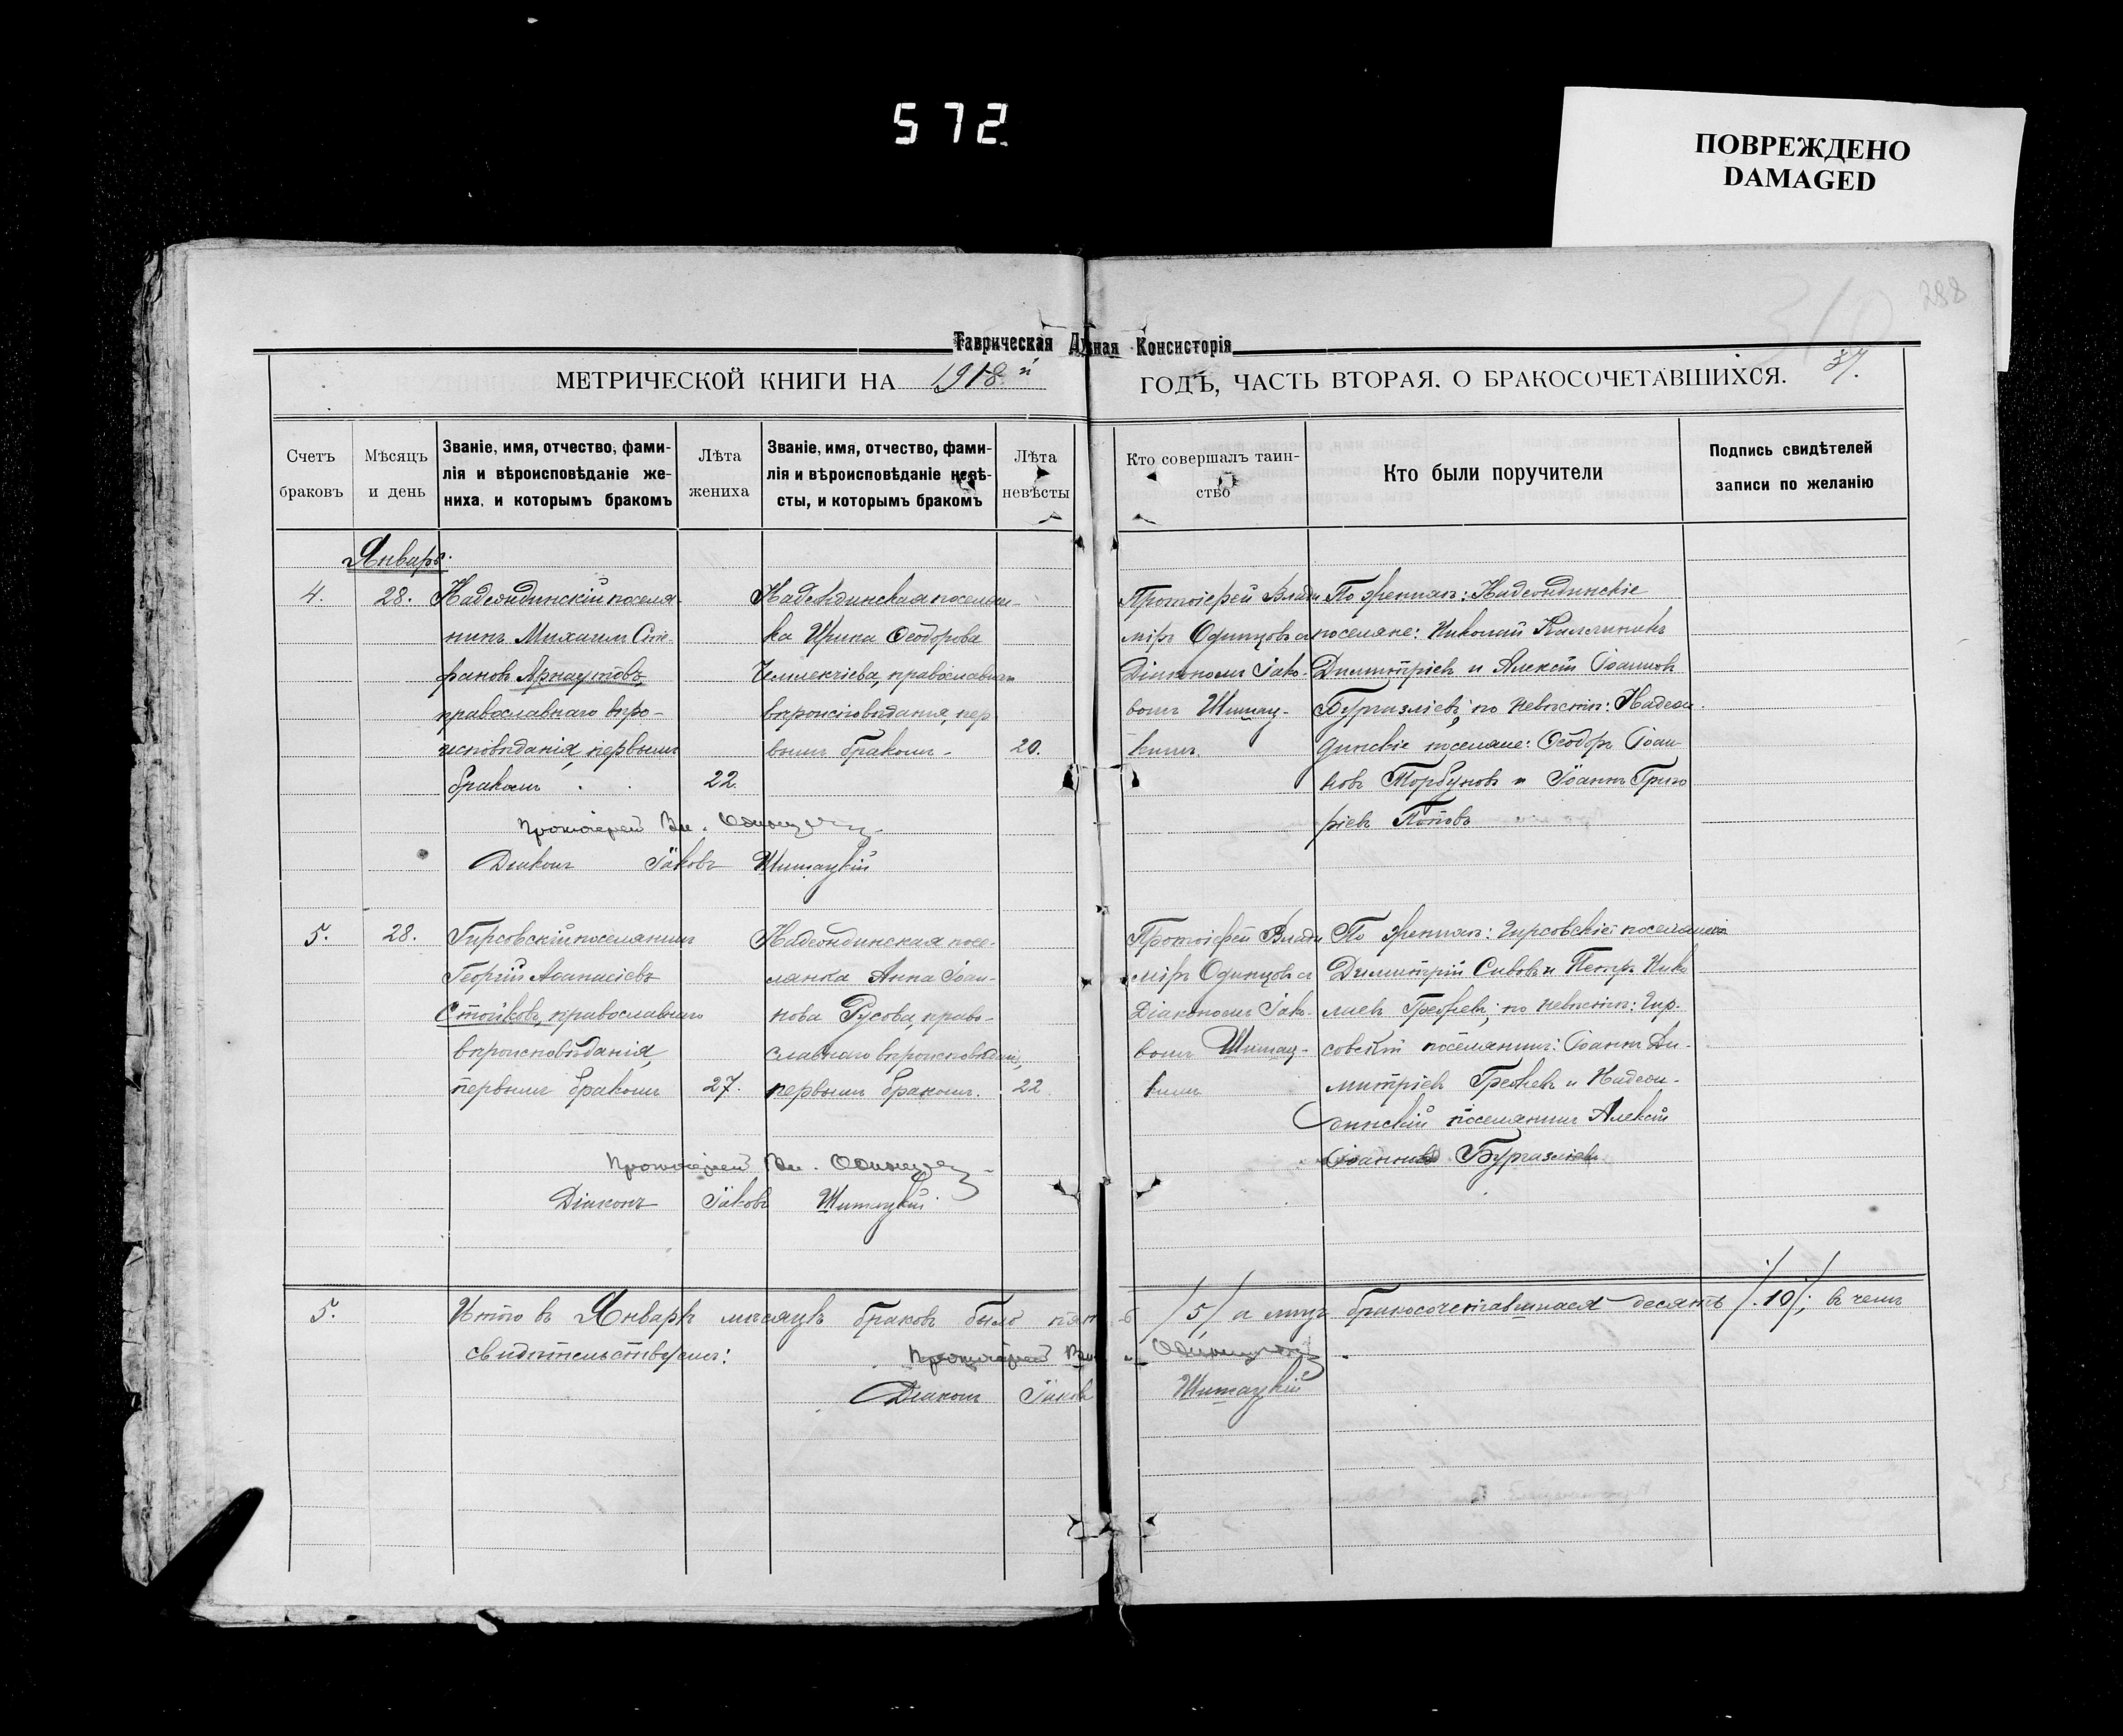 572
ПОВРЕЖДЕНО
DAMAGED
288
310
Таврическая Духная Консисторія
МЕТРИЧЕСКОЙ КНИГИ НА 1918 й ГОДЪ, ЧАСТЬ ВТОРАЯ. О БРАКОСОЧЕТАВШИХСЯ.
37.
Счетъ
браковъ
Мѣсяцъ
и день
Званіе, имя, отчество, фами-
лія и вѣроисповѣданіе же-
ниха, и которымъ бракомъ
Лѣта
жениха
Званіе, имя, отчество, фами-
лія и вѣроисповѣданіе невѣ-
сты, и которымъ бракомъ
Лѣта
невѣсты
Кто совершалъ таин-
ство
Кто были поручители
Подпись свидѣтелей
записи по желанію
Январь.
4.
28.
Надеждинскій поселя-
нинъ Михаилъ Сте-
фановъ Арнаутовъ,
православнаго вѣро-
исповѣданія, первымъ
бракомъ
22.
Надеждинская поселян-
ка Ирина Ѳеодорова
Чемлекчіева, православнаго
вѣроисповѣданія, пер-
вымъ бракомъ
20.
Протоіерей Влади
міръ Одинцовъ съ
Діакономъ Іако-
вомъ Шитац-
кимъ.
По женихѣ: Надеждинскіе
поселяне: Николай
Димитріевъ и Алексѣй Іоанновъ
Бургазліевъ; по невѣстѣ: Надеж
динскіе поселяне: Ѳеодоръ Іоан
новъ Торбуновъ и Іоаннъ Григо
ріевъ Поповъ
Протоіерей Вл. Одинцовъ
Діаконъ Іаковъ Шитацкій
5.
28.
Гирсовскій поселянинъ
Георгій Аѳанасіевъ
Стойковъ, православнаго
вѣроисповѣданія,
первымъ бракомъ
27.
Надеждинская посе-
лянка Анна Іоан-
нова Русова, право-
славнаго вѣроисповѣданія,
первымъ бракомъ.
22.
Протоіерей Влади
міръ Одинцовъ съ
Діакономъ Іако-
вомъ Шитац-
кимъ
По женихѣ: Гирсовскіе поселяне
Димитрій Сивовъ и Петръ Нико
лаевъ Грежевъ; по невѣстѣ: Гир-
совскій поселянинъ: Іоаннъ Ди-
митріевъ Грежевъ и Надеж-
динскій поселянинъ Алексѣй
Іоанновъ Бургазліевъ
Протоіерей Вл. Одинцовъ
Діаконъ Іаковъ Шитацкій
5.
Итого въ Январѣ мѣсяцѣ браковъ было пять /5/ а лицъ бракосочетавшихся десять /10/; въ чемъ
свидѣтельствуемъ: Протоіерей Вл. Одинцовъ
Діаконъ Іаковъ Шитацкій